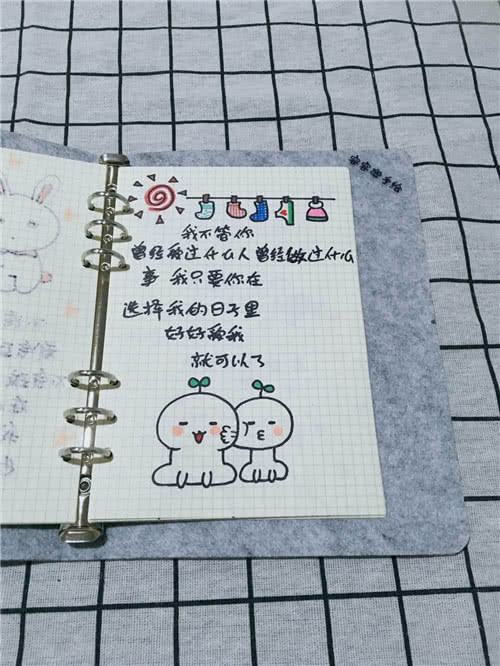 我不管你
曾经爱过什么人曾经做过什么
事 我只要你在
选择我的日子里
好好爱我
就可以了